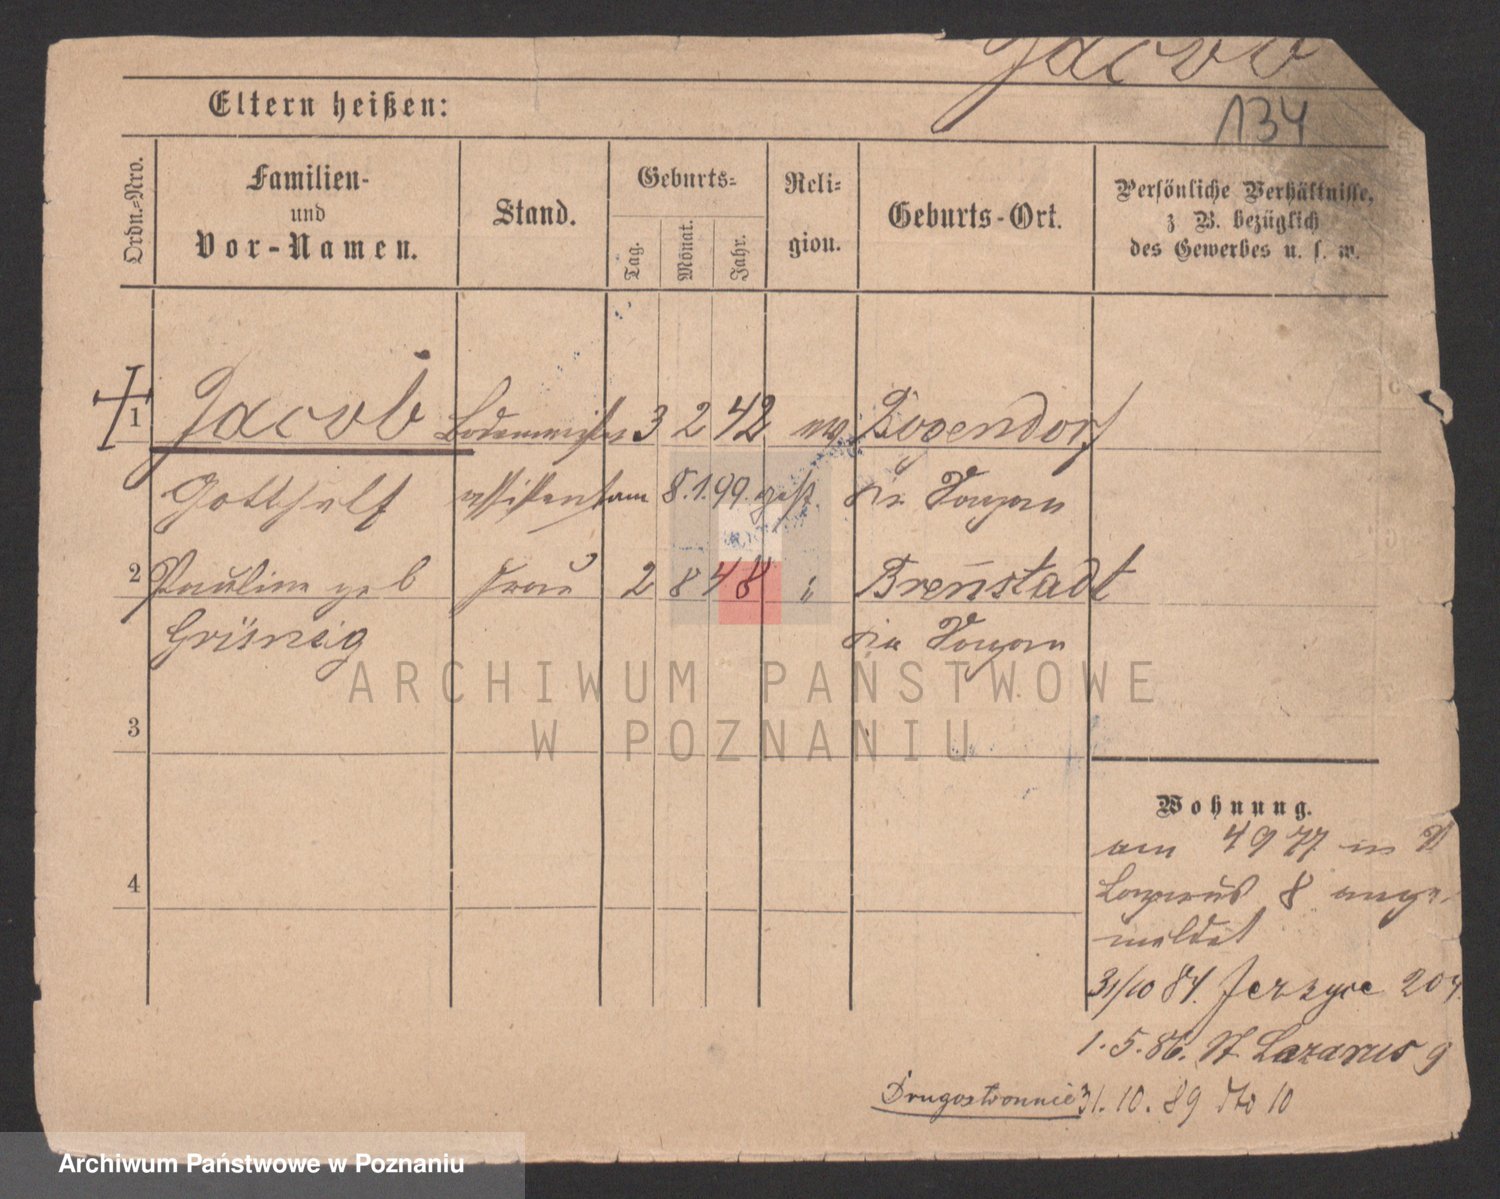 Jacob
134
Eltern heißen:
Ordn.-Nro.
Familien-
und
Vor-Namen.
Stand.
Geburts-
Tag.
Monat.
Jahr.
Reli-
gion.
Geburts-Ort.
Persönliche Verhältnisse,
z B. bezüglich
des Gewerbes u. s. w.
1 Jacob Bodenmeister 3 2 42 ev Bogendorf
Gotthelf assistent am 8.1.99. gest.
2 Pauline geb Frau 2 8 48 " Breñstadt
3
4
ARCHIWUM PAŃSTWOWE
W POZNANIU
Wohnung.
am 4 9 77 in St
Lazarus 8 ange-
meldet
31/10 84. Jerzyce 204.
1.5.86. St Lazarus 9
Drugostronnie 31.10.89 dto 10
Archiwum Państwowe w Poznaniu